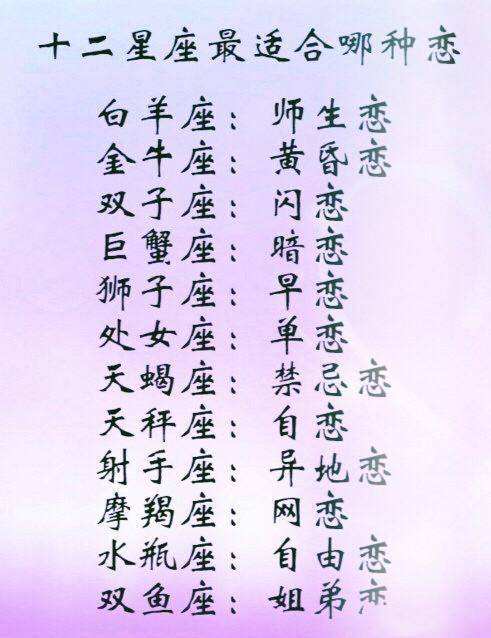 十二星座最适合哪种恋
白羊座：师生恋
金牛座：黄昏恋
双子座：闪恋
巨蟹座：暗恋
狮子座：早恋
处女座：单恋
天蝎座：禁忌恋
天秤座：自恋
射手座：异地恋
摩羯座：网恋
水瓶座：自由恋
双鱼座：姐弟恋